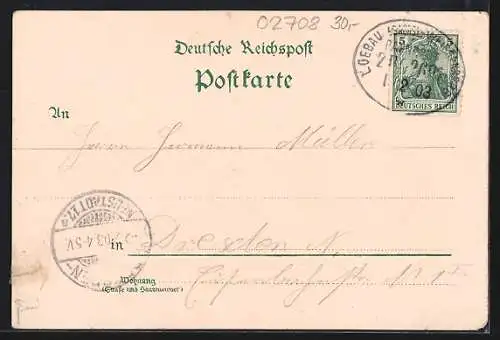 02708 30,-
Deutsche Reichspost
Postkarte
LOEBAU
5
2 03
DEUTSCHES REICH
An
Herrn Hermann Müller
NEUSTADT
03.4-5V.
in Dresden N.
Wohnung
(Straße und Hausnummer)